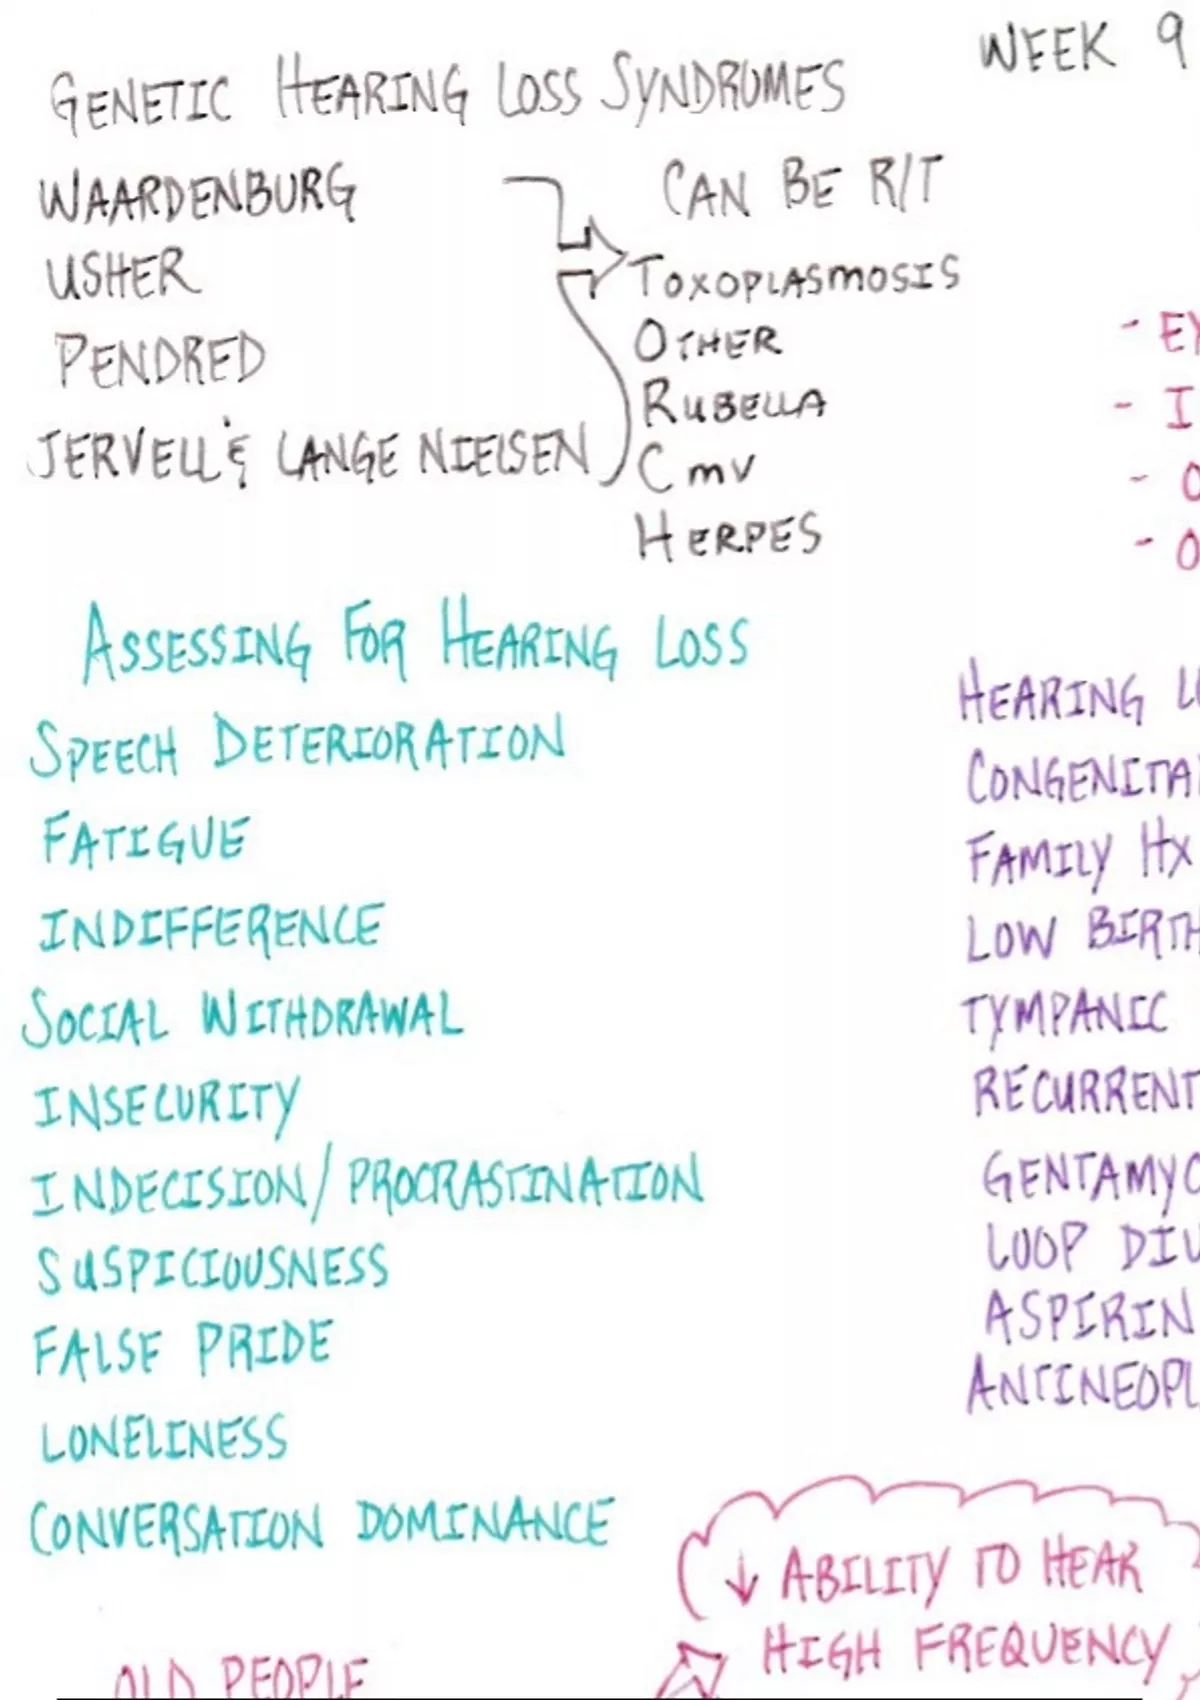 WEEK 9
GENETIC HEARING LOSS SYNDROMES
WAARDENBURG
USHER
PENDRED
JERVELL & LANGE NIELSEN
CAN BE R/T
TOXOPLASMOSIS
OTHER
RUBELLA
CMV
HERPES
- I
- O
- O
ASSESSING FOR HEARING LOSS
SPEECH DETERIORATION
FATIGUE
INDIFFERENCE
SOCIAL WITHDRAWAL
INSECURITY
INDECISION/PROCRASTINATION
SUSPICIOUSNESS
FALSE PRIDE
LONELINESS
CONVERSATION DOMINANCE
HEARING
CONGENITA
FAMILY HX
LOW BIRTH
TYMPANIC
RECURRENT
GENTAMYC
LOOP DIU
ASPIRIN
ANTINEOPL
↓ ABILITY TO HEAR
HIGH FREQUENCY
OLD PEOPLE